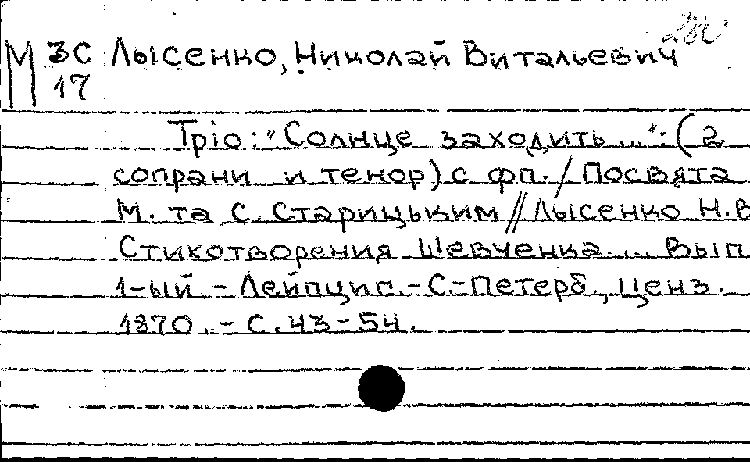 М 3С Лысенко, Николай Витальевич
17
Трiо: "Солнце заходить...": (2
сопрани и тенор) с фп. / Посвята
М. та С. Старицьким // Лысенко Н.В
Стихотворения Шевченка... Вып
1-ый - Лейпциг. - С.-Петерб., ценз.
1870. - С. 43-54.